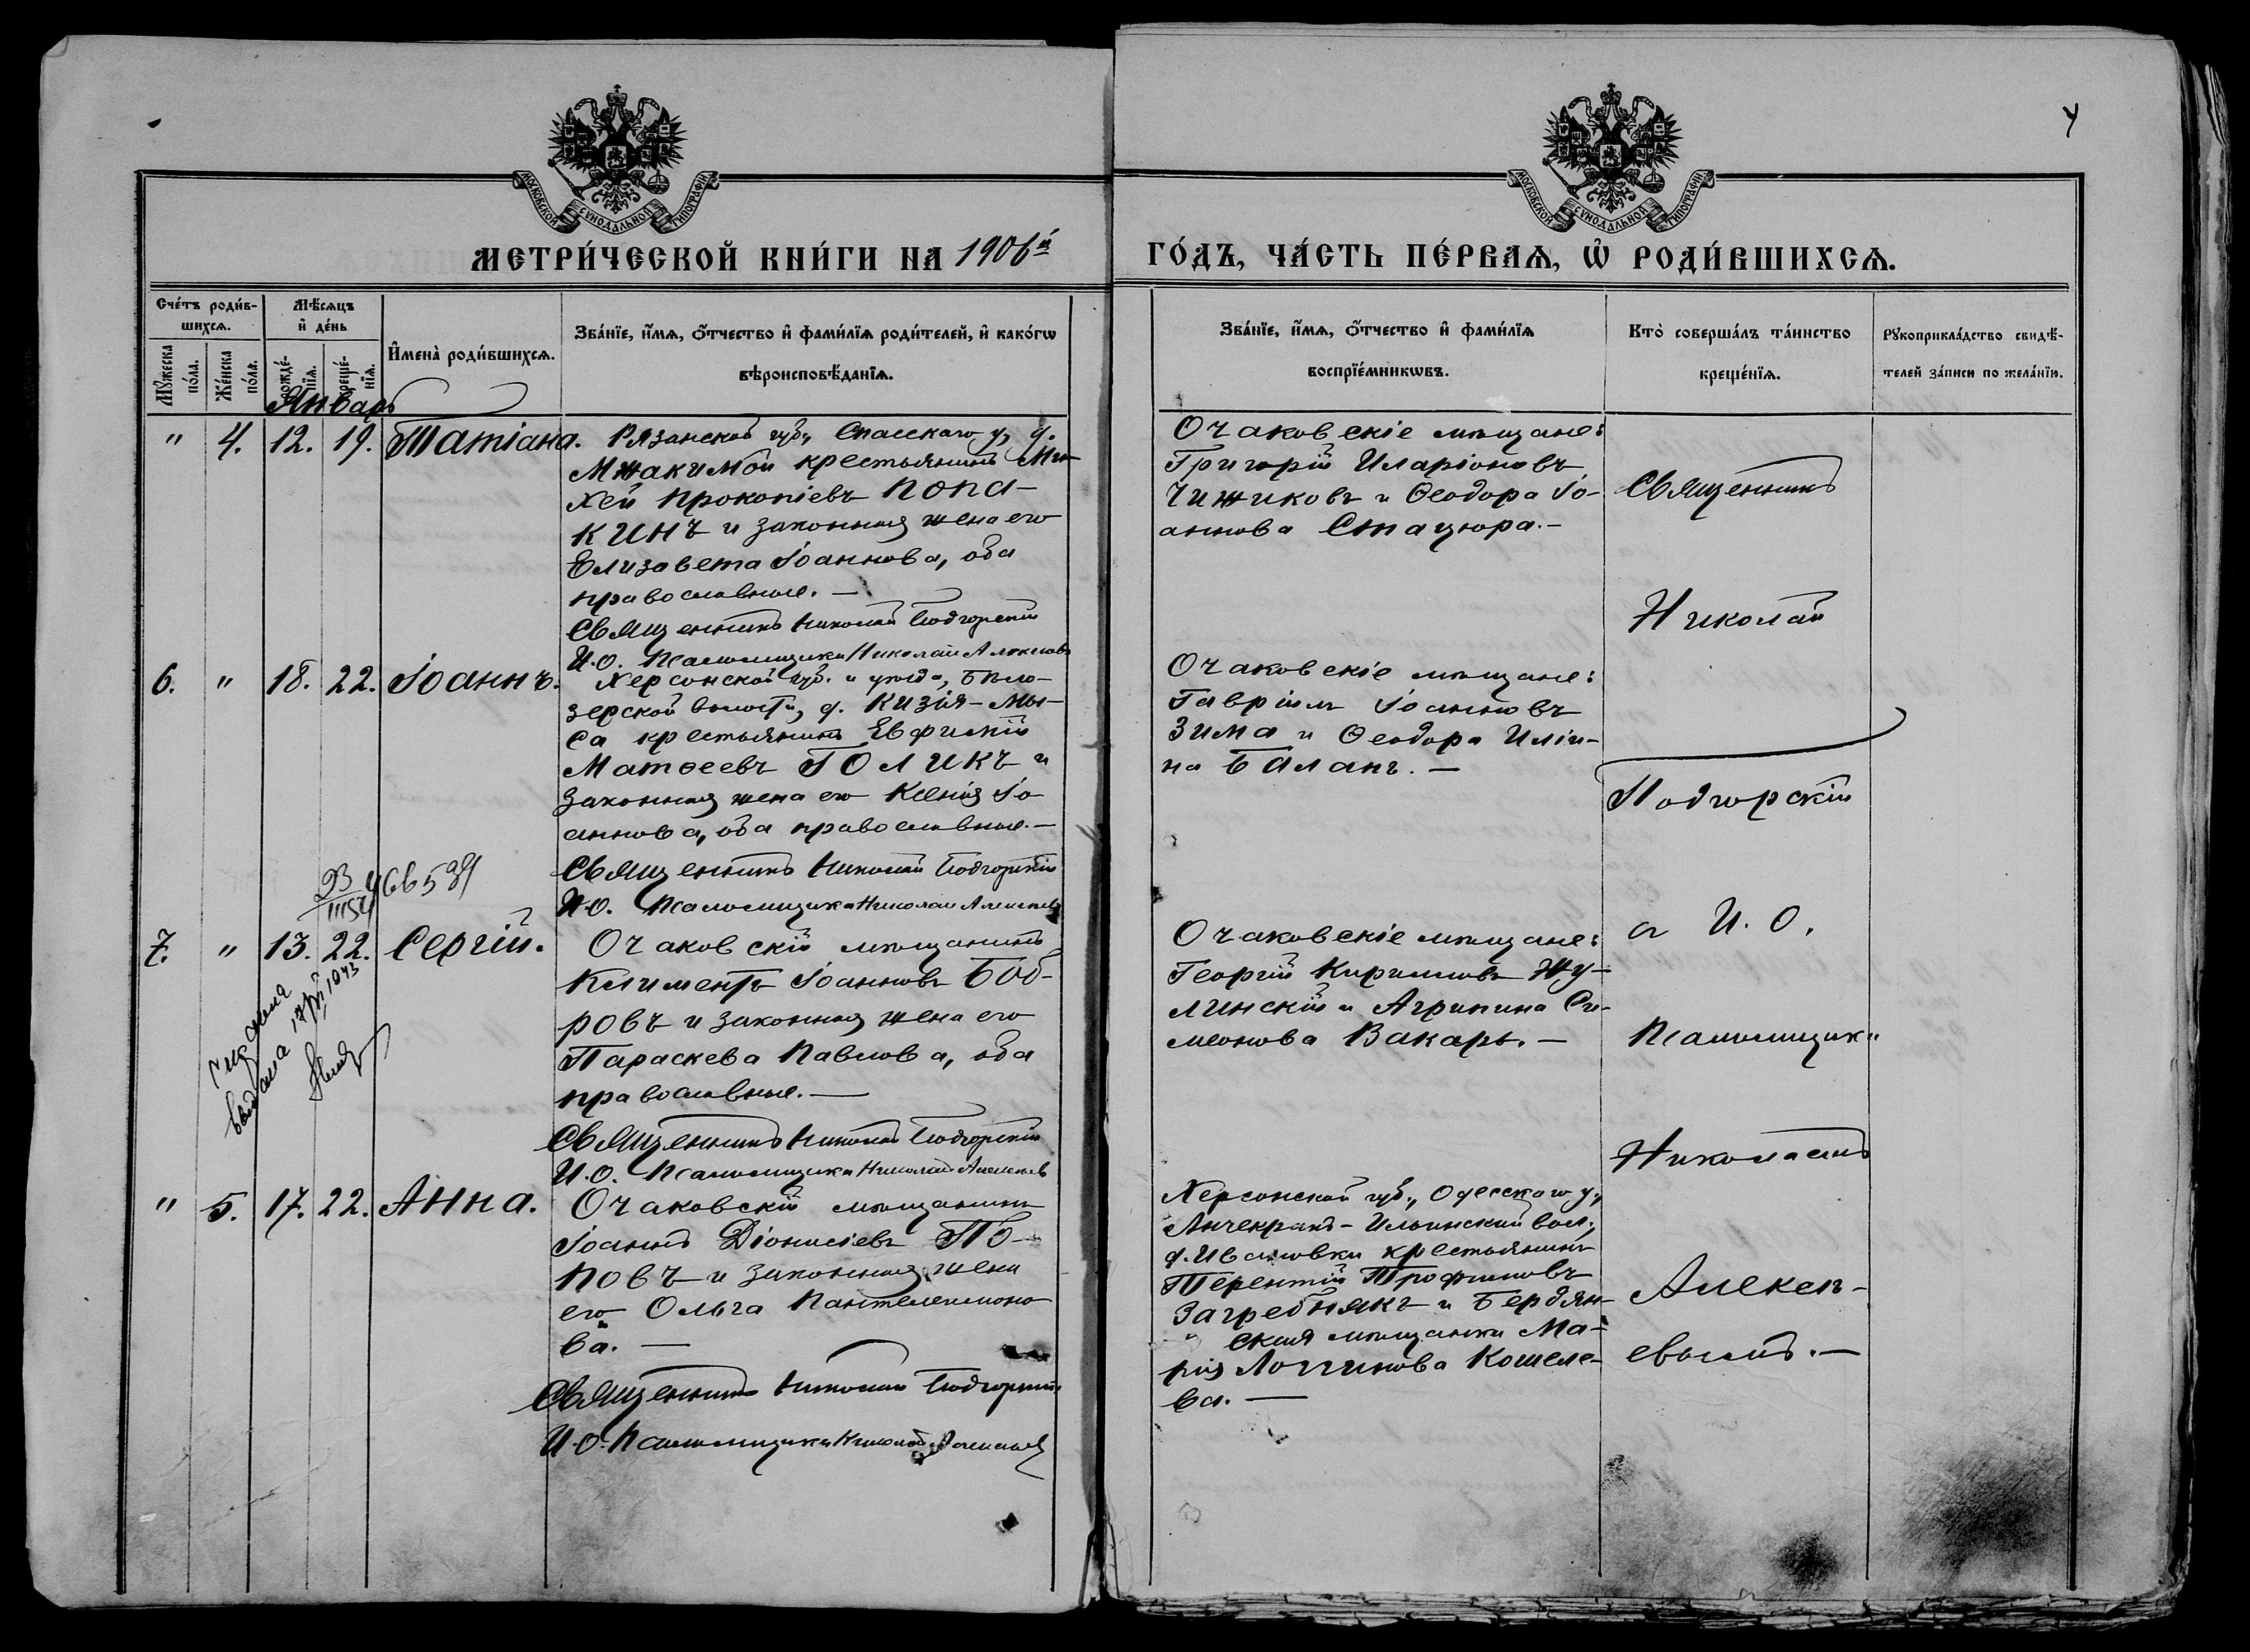 4
МОСКОВСКОЙ СѴНОДАЛЬНОЙ ТИПОГРАФІИ
МОСКОВСКОЙ СѴНОДАЛЬНОЙ ТИПОГРАФІИ
МЕТРИ́ЧЕСКОЙ КНИ́ГИ НА 1906й
ГО́ДЪ, ЧА́СТЬ ПЕ́РВАЯ, Ѡ҆ РОДИ́ВШИХСЯ.
Сче́тъ роди́в-
шихся.
Мѣ́сяцъ
и҆ де́нь
Му́жеска по́ла.
Же́нска по́ла.
рожде́-нїя.
креще́-нїя.
И҆мена̀ роди́вшихся.
Зва́нїе, и҆́мя, ѻ҆́тчество и҆ фами́лїя роди́телей, и҆ како́гѡ
вѣроисповѣ́данїя.
Зва́нїе, и҆́мя, ѻ҆́тчество и҆ фами́лїя
воспрїе́мникѡвъ.
Кто̀ соверша́лъ та́инство
креще́нїя.
Рукоприкла́дство свидѣ́-
телей за́писи по жела́нїю.
Январь
" 4. 12. 19. Татіана.
Рязанской губ., Спасскаго у., д.
Мжакимой крестьянинъ Ми-
хей Прокопіевъ Попа-
кинъ и законная жена его
Елизавета Іоаннова, оба
православные. —
Священникъ Николай Подгорскій
И.О. Псаломщика Николай Алексѣевъ
Очаковскіе мѣщане:
Григорій Иларіоновъ
Чижиковъ и Ѳеодора Іо-
аннова Стацюра. —
6. " 18. 22. Іоаннъ.
Херсонской губ. и уѣзда, Бѣло-
зерской волости, д. Кизія-Мы-
са крестьянинъ Евфимій
Матѳеевъ Голикъ и
законная жена его Ксенія Іо
аннова, оба православные. —
Священникъ Николай Подгорскій
И.О. Псаломщика Николай Алексѣевъ
Очаковскіе мѣщане:
Гавріилъ Іоанновъ
Зима и Ѳеодора Иліи-
на Баланъ. —
7. " 13. 22. Сергій.
Очаковскій мѣщанинъ
Климентъ Іоанновъ Боб-
ровъ и законная жена его
Параскева Павлова, оба
православные. —
Священникъ Николай Подгорскій
И.О. Псаломщика Николай Алексѣевъ
Очаковскіе мѣщане:
Георгій Кирилловъ Жу-
линскій и Агрипина Си-
меонова Вакарь. —
выдана
" 5. 17. 22. Анна.
Очаковскій мѣщанинъ
Іоаннъ Діонисіевъ По-
повъ и законная жена
его Ольга Пантелеимоно
ва. —
Священникъ Николай Подгорскій
И.О. Псаломщика Николай Алексѣевъ
Херсонской губ., Одесскаго у.,
Анчекракъ-Ильинской вол.,
д. Ивановки крестьянинъ
Терентій Трофимовъ
Загребнякъ и Бердян-
ская мѣщанка Ма-
рія Логгинова Кошеле-
ва. —
Священникъ
Николай
Подгорскій
съ И.О.
Псаломщика
Николаемъ
Алексѣ-
евымъ. —